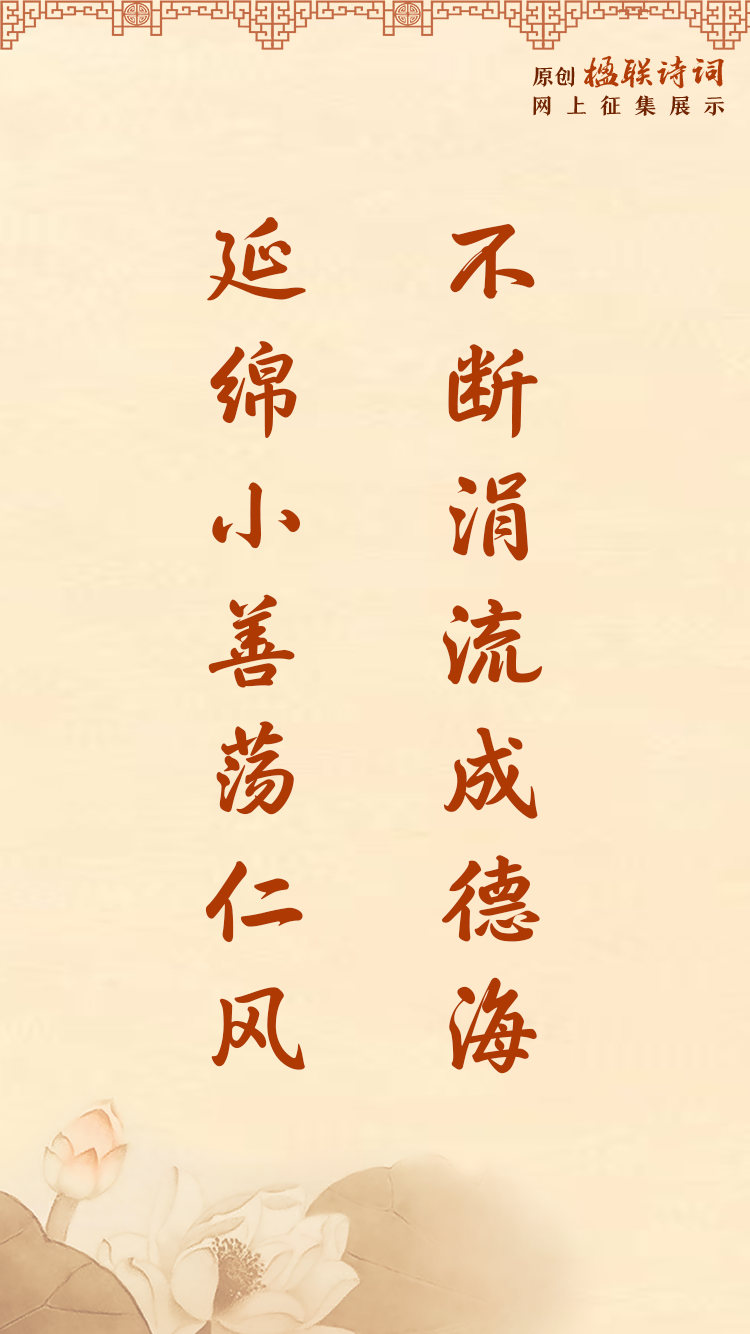 原创楹联诗词
网上征集展示
不断涓流成德海
延绵小善荡仁风